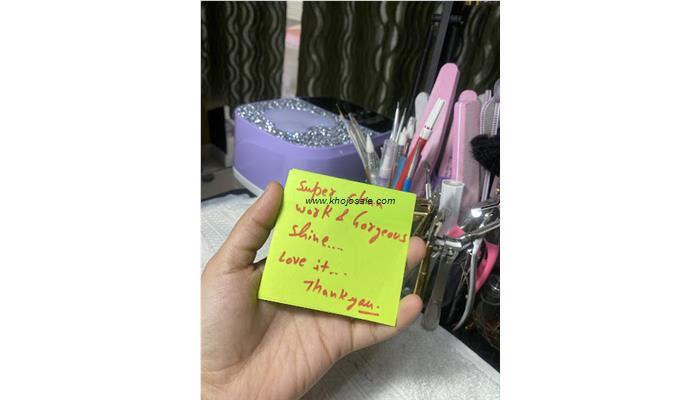 Super clean
www.khojosale.com
work & Gorgeous
Shine...
Love it...
Thankyou.